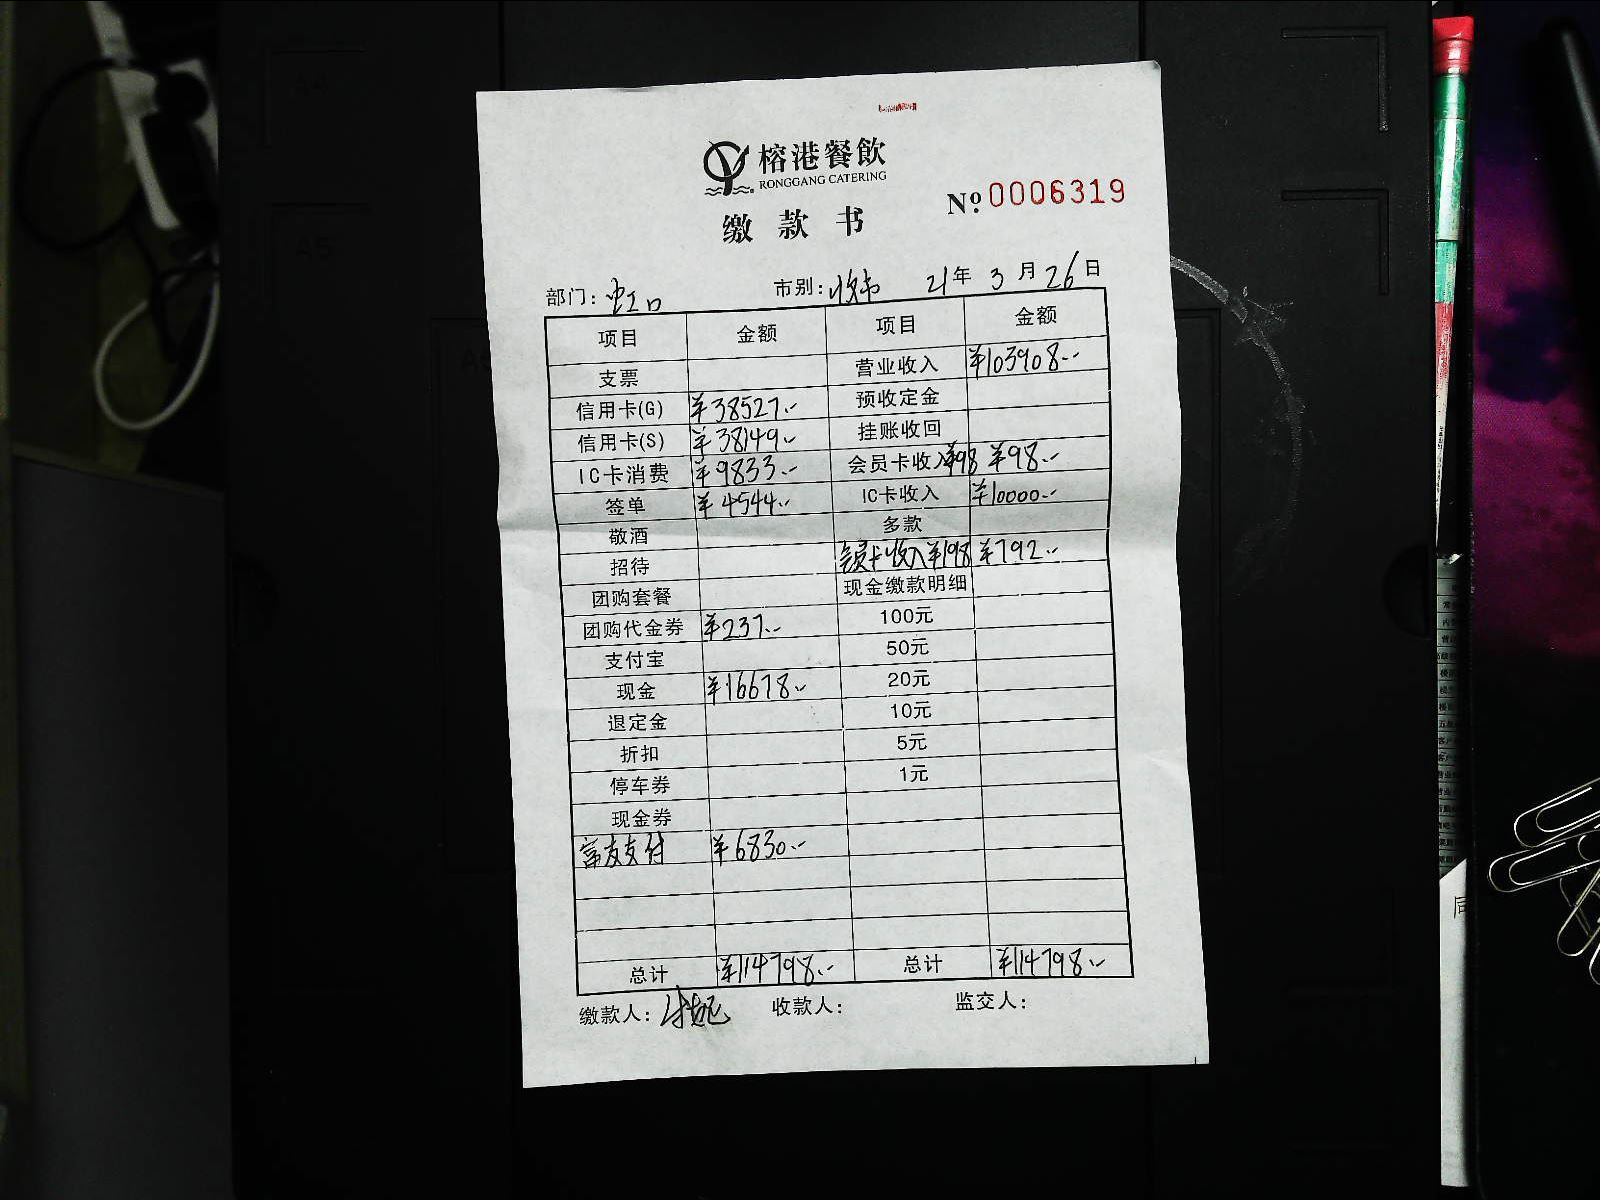 榕港餐飲
RONGGANG CATERING
缴款书
Nº.0006319
部门：虹口 市别： 21年3月26日
项目 金额 项目 金额
支票 营业收入 ¥103908.-
信用卡(G) ¥38527.- 预收定金
信用卡(S) ¥38149.- 挂账收回
IC卡消费 ¥9833.- 会员卡收入¥98 ¥98.-
签单 ¥4544.- IC卡收入 ¥10000.-
敬酒 多款
招待 会员卡收入¥198 ¥792.-
团购套餐 现金缴款明细
团购代金券 ¥237.- 100元
支付宝 50元
现金 ¥16678.- 20元
退定金 10元
折扣 5元
停车券 1元
现金券
富友支付 ¥6830.-
总计 ¥114798.- 总计 ¥114798.-
缴款人： 收款人： 监交人：